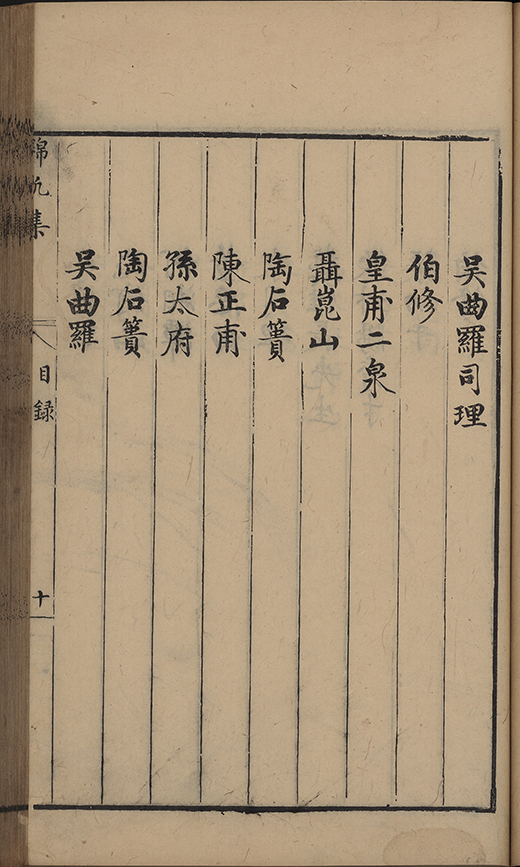 吴曲羅司理
伯修
皇甫二泉
聶崑山
陶石簣
陳正甫
孫太府
陶石簣
吴曲羅
錦帆集
目録
十